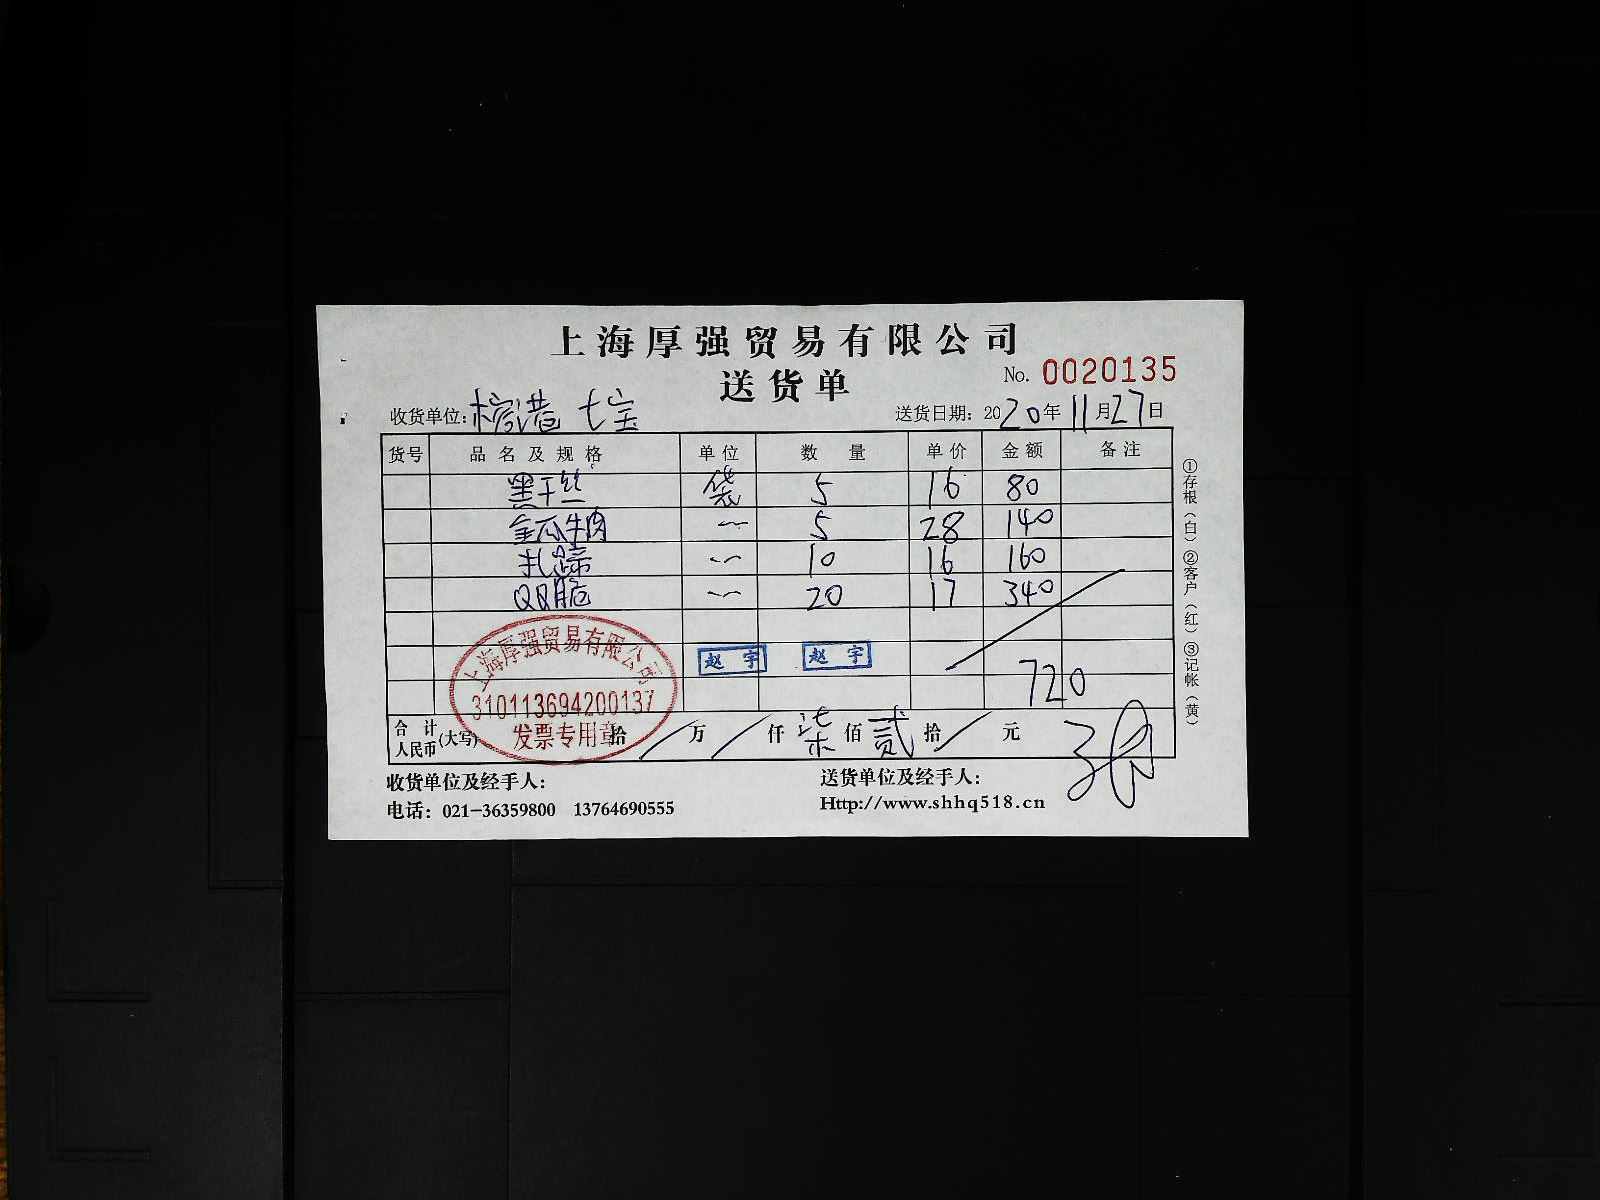 上海厚强贸易有限公司
送货单
No. 0020135
收货单位: 榕港 七宝
送货日期: 2020年11月27日
货号 品名及规格 单位 数量 单价 金额 备注
黑干丝 袋 5 16 80
金瓜牛肉 〃 5 28 140
扎蹄 〃 10 16 160
QQ脆 〃 20 17 340
赵宇 赵宇
720
上海厚强贸易有限公司
310113694200137
发票专用章
合计人民币(大写) 拾 / 万 / 仟 柒 佰 贰 拾 / 元
收货单位及经手人:
送货单位及经手人:
电话: 021-36359800 13764690555
Http://www.shhq518.cn
①存根(白) ②客户(红) ③记帐(黄)